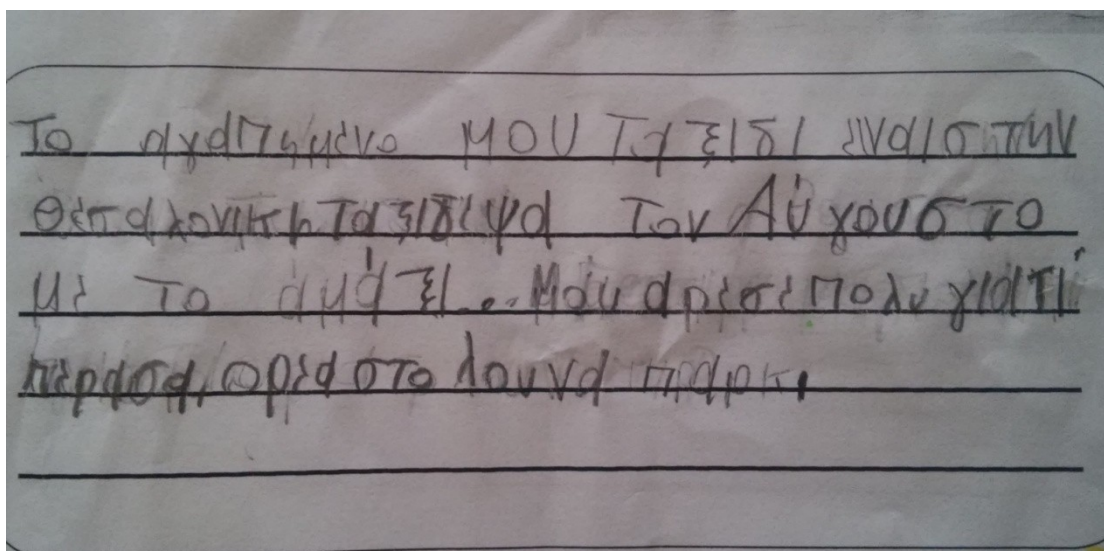 Το αγαπημένο μου ταξιδι εναι στην
θεσαλονικη ταξιδεψα τον Αύγουστο
με το αμάξι... Μου αρεσε πολυ γιατί
περασα, ορεα στο λουνα παρκ.